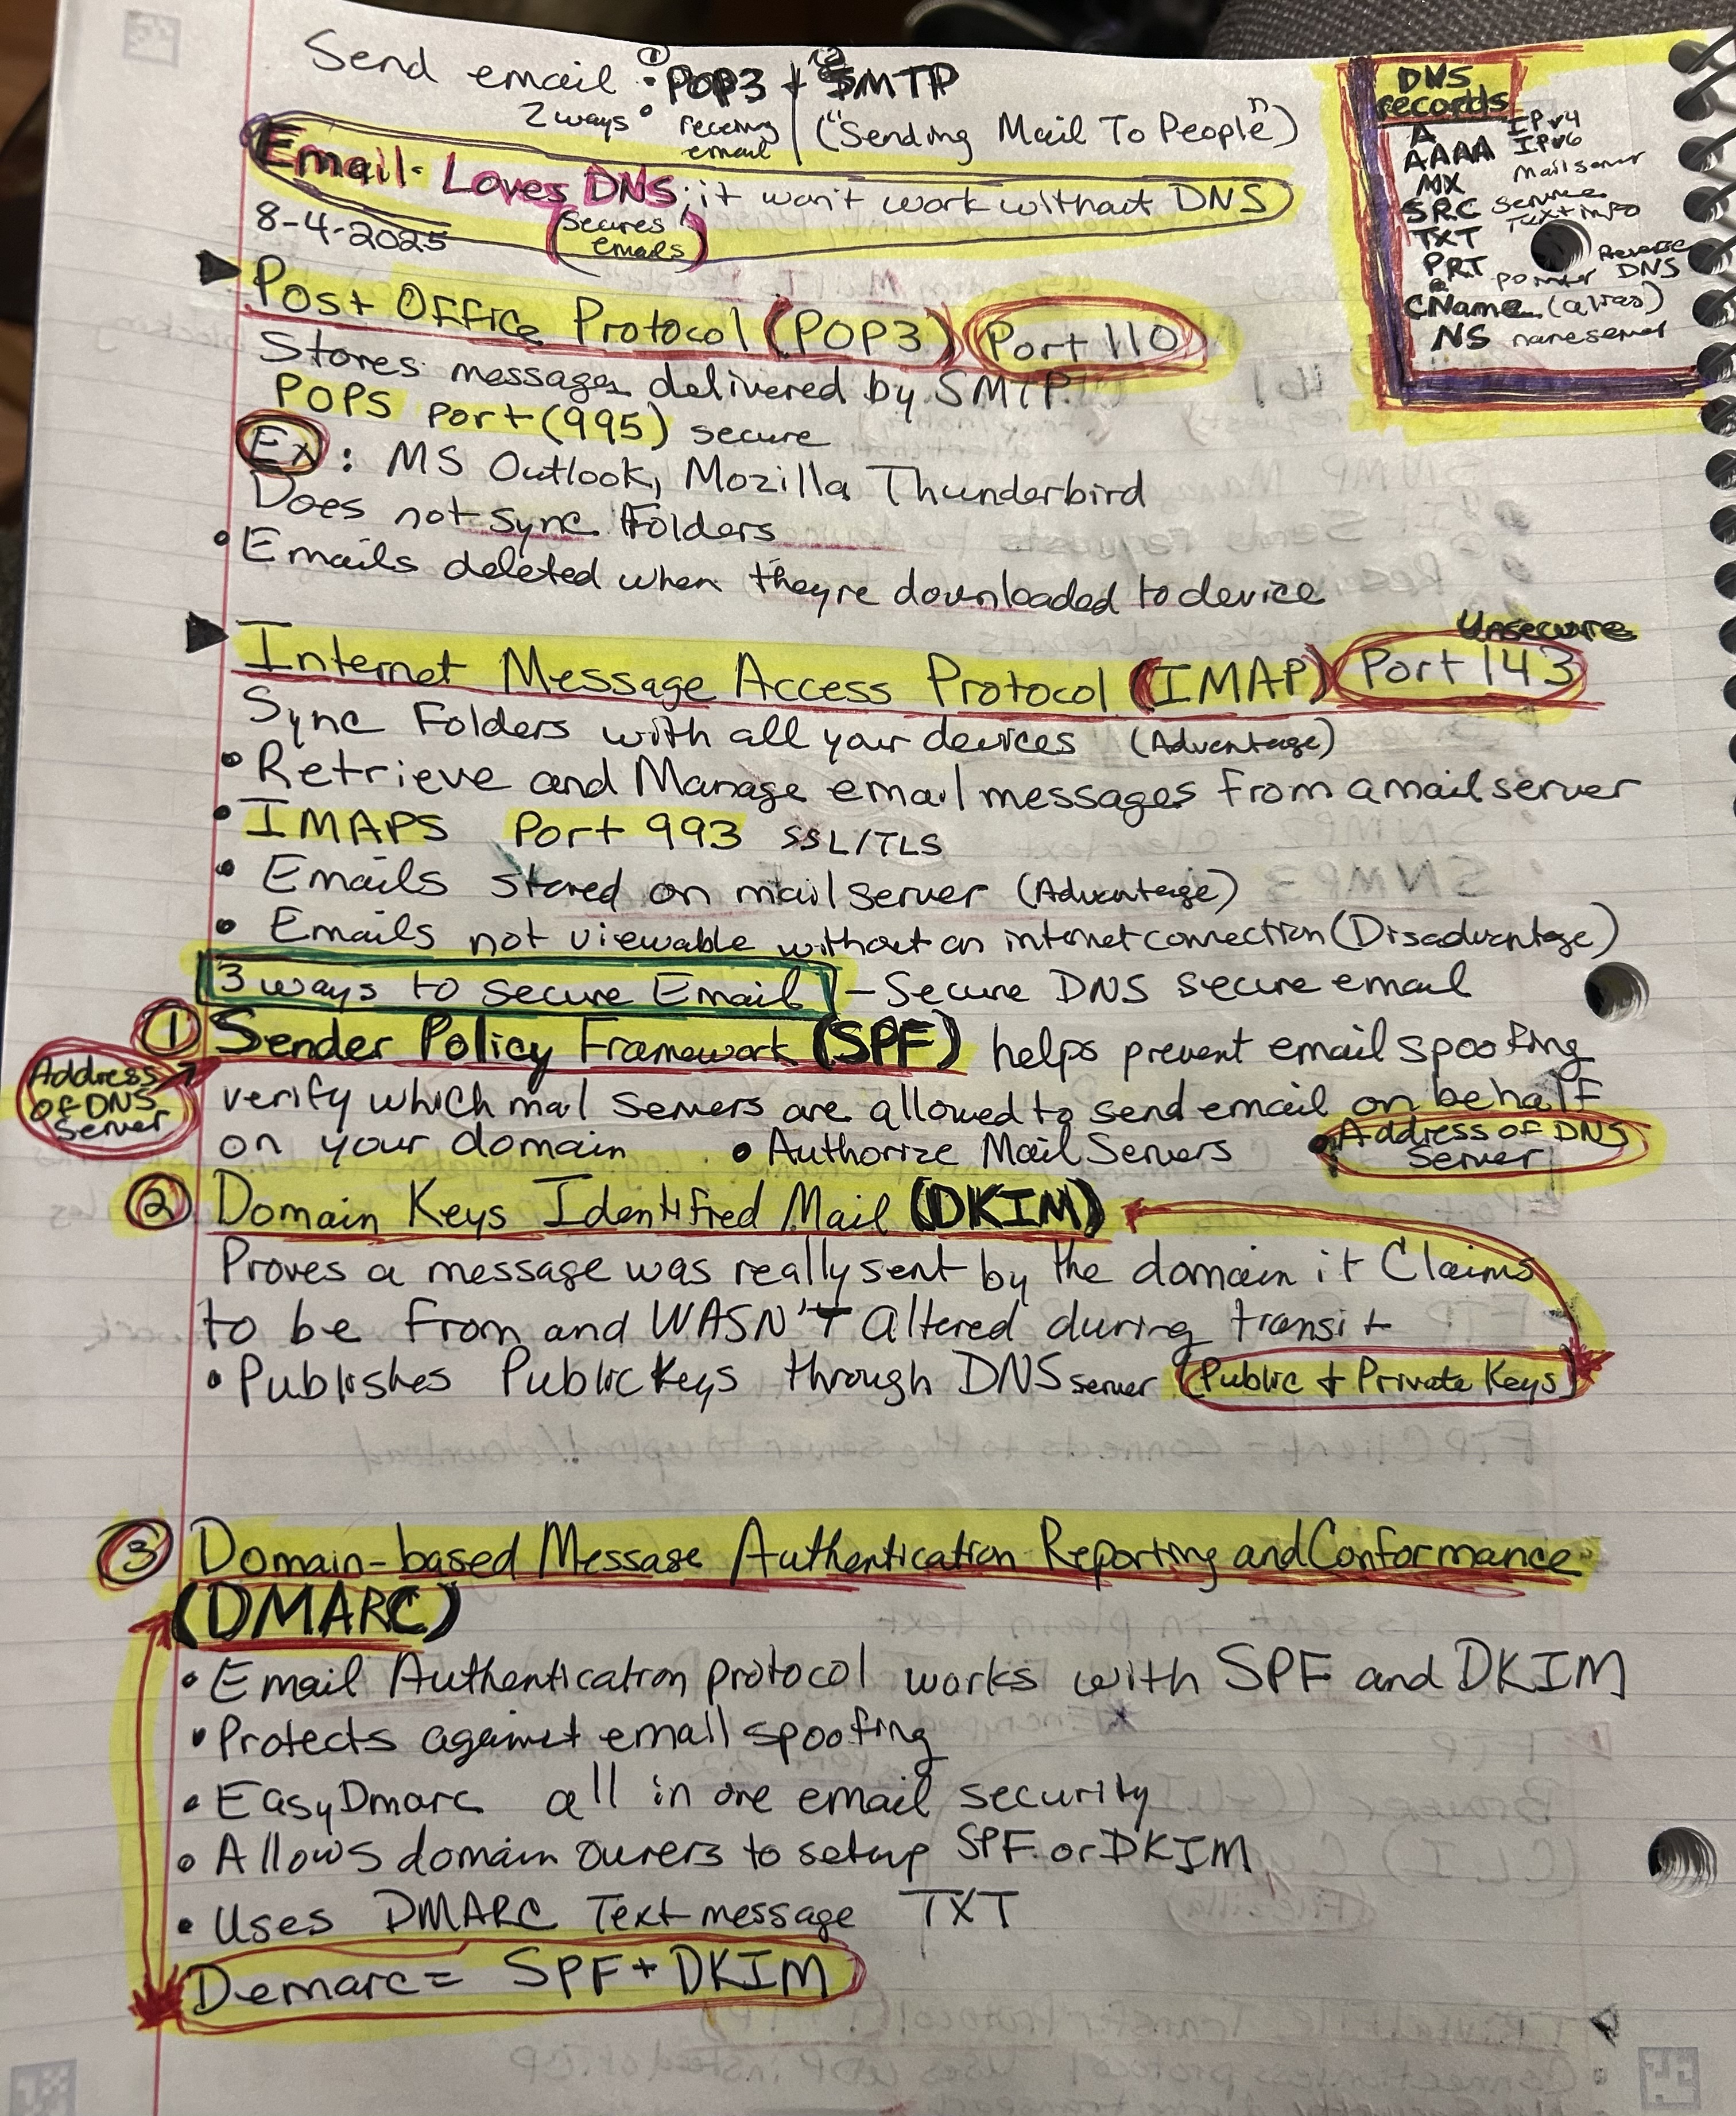 Send email ① • POP3 + ② SMTP
2 ways • receving email ("Sending Mail To People")
Email Loves DNS; it won't work without DNS
8-4-2025 (Secures emails)
DNS records
A IPv4
AAAA IPv6
MX Mail server
SRC service
TXT Text info
PRT pointer Reverse DNS
CName (alias)
NS nameserver
Post Office Protocol (POP3) Port 110
Stores messages delivered by SMTP.
POPS Port (995) secure
Ex: MS Outlook, Mozilla Thunderbird
Does not sync Folders
• Emails deleted when they're downloaded to device
Unsecure
Internet Message Access Protocol (IMAP) Port 143
Sync Folders with all your devices (Advantage)
• Retrieve and Manage email messages from a mail server
• IMAPS Port 993 SSL/TLS
• Emails stored on mail server (Advantage)
• Emails not viewable without an internet connection (Disadvantage)
3 ways to secure Email - Secure DNS secure email
① Sender Policy Framework (SPF) helps prevent email spoofing
Address of DNS Server
verify which mail servers are allowed to send email on behalf
on your domain • Authorize Mail Servers • Address of DNS Server
② Domain Keys Identified Mail (DKIM)
Proves a message was really sent by the domain it Claims
to be from and WASN'T altered during transit
• Publishes Public Keys through DNS server (Public + Private Keys)
③ Domain-based Message Authentication Reporting and Conformance
(DMARC)
• Email Authentication protocol works with SPF and DKIM
• Protects against email spoofing
• EasyDmarc all in one email security
• Allows domain owners to setup SPF or DKIM
• Uses DMARC Text message TXT
Demarc = SPF + DKIM